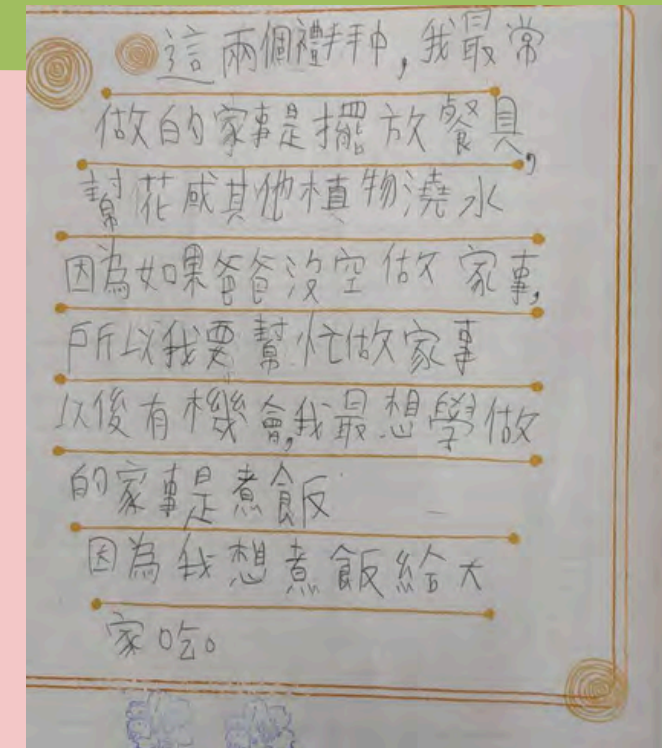 這兩個禮拜中,我最常
做的家事是擺放餐具,
幫花或其他植物澆水
因為如果爸爸沒空做家事,
所以我要幫忙做家事
以後有機會,我最想學做
的家事是煮飯
因為我想煮飯給大
家吃。